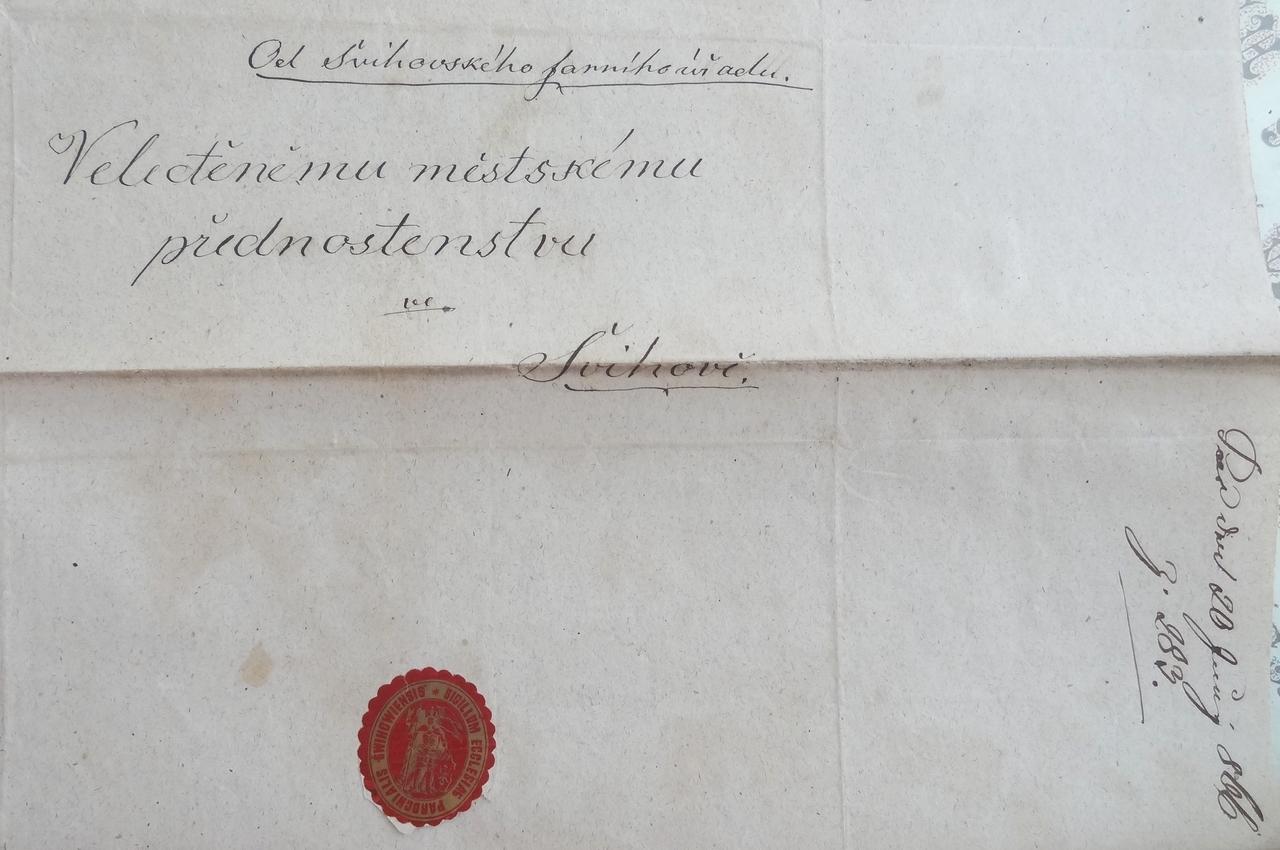 Od Švihovského farního úřadu.
Velectěnému městskému
přednostenstvu
ve
Švihově.
dne 20 Juny 866
Z. 283.
SIGILLUM ECCLESIAE PAROCHIALIS ŠWIHOWIENSIS